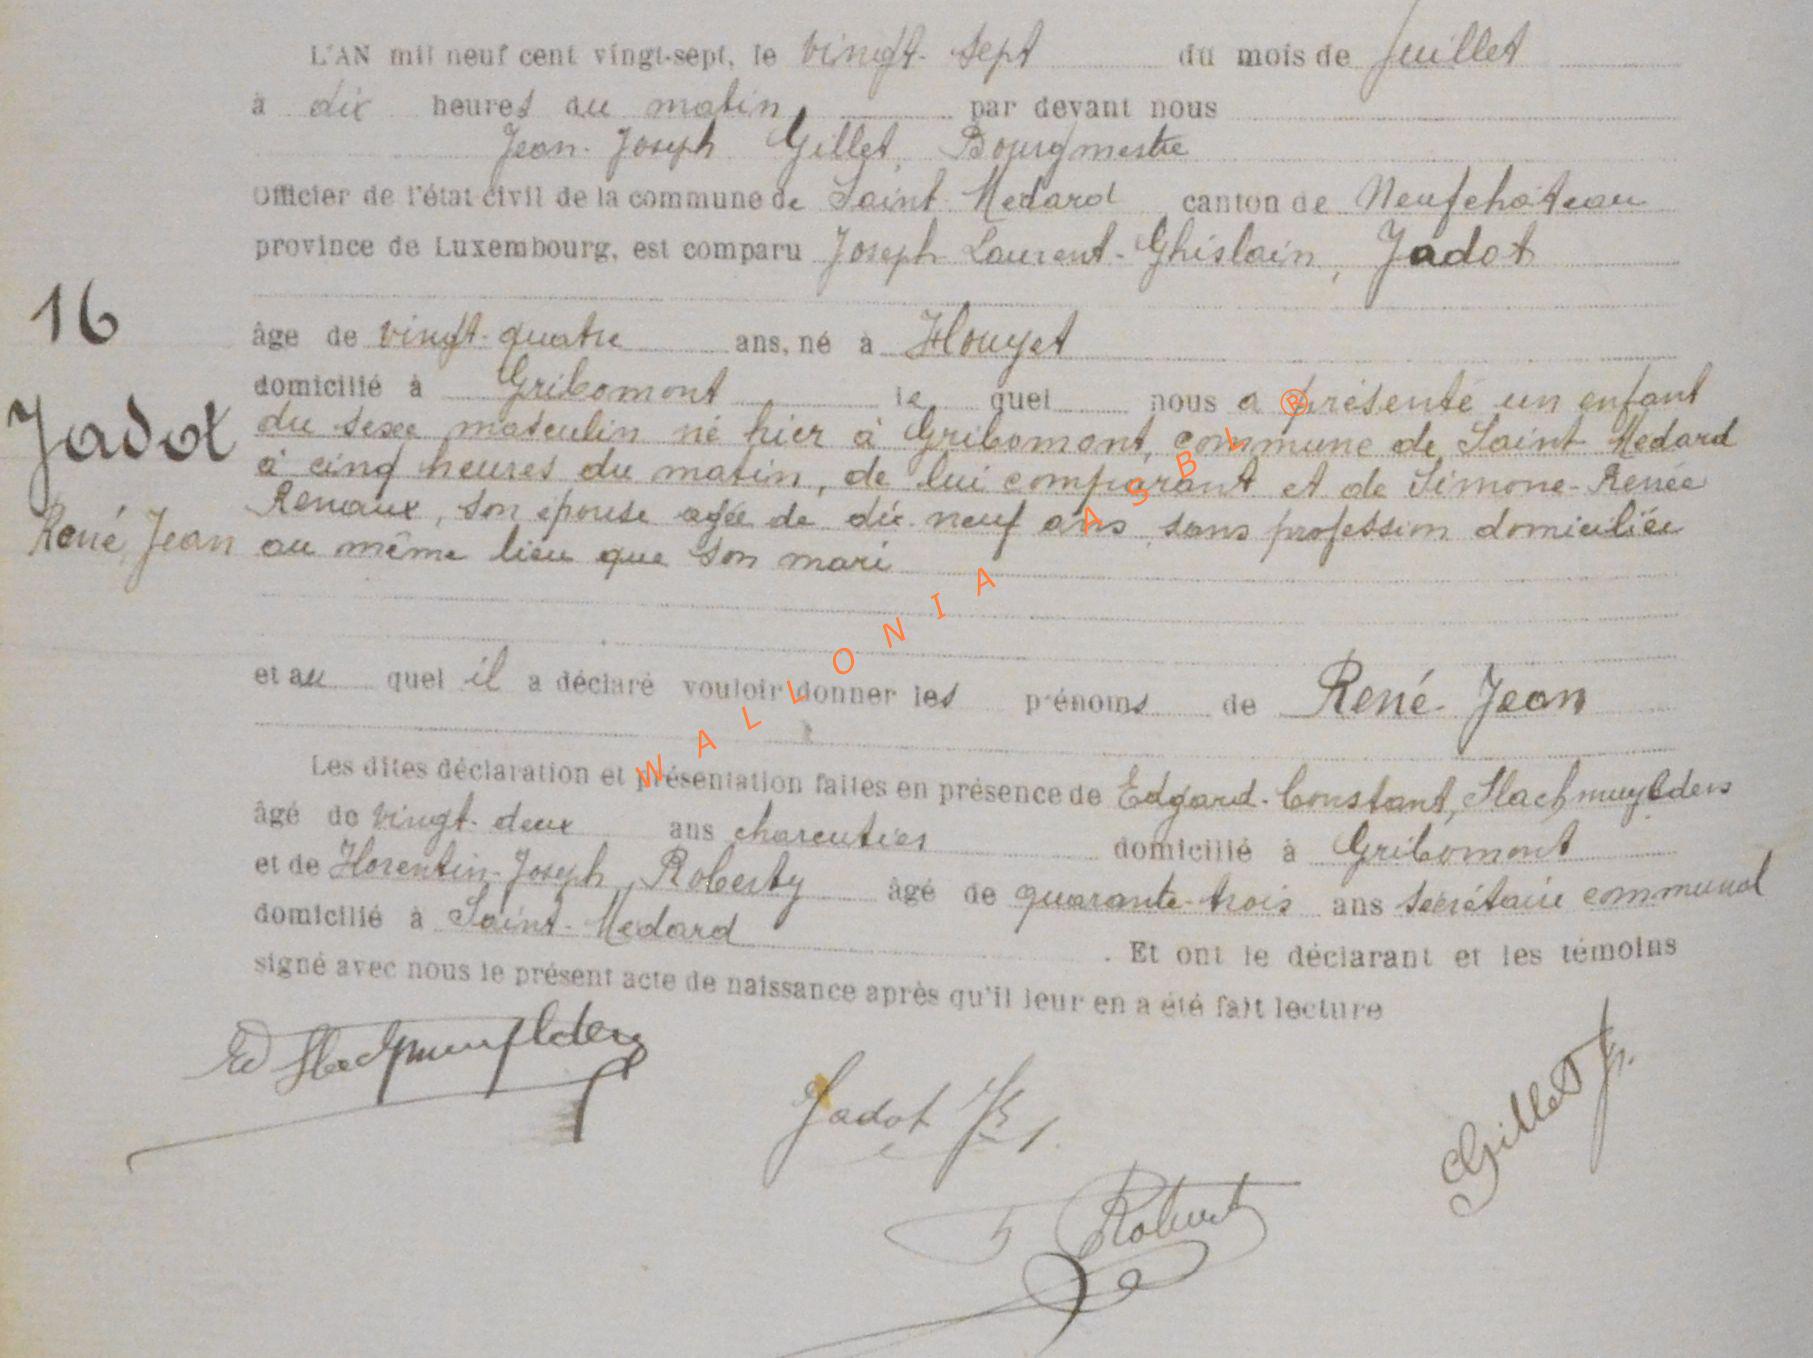 L'AN mil neuf cent vingt-sept, le vingt-sept du mois de Juillet
à dix heures du matin par devant nous
Jean-Joseph Gillet, Bourgmestre
Officier de l'état civil de la commune de Saint-Medard canton de Neufchâteau
province de Luxembourg, est comparu Joseph Laurent-Ghislain, Jadot
16
âge de vingt-quatre ans, né à Houyet
domicilié à Gribomont le quel nous a présenté un enfant
Jadot
du sexe masculin né hier à Gribomont, commune de Saint-Medard
à cinq heures du matin, de lui comparant et de Simone-Renée
Renaux, son épouse agée de dix-neuf ans, sans profession domiciliée
René, Jean
au même lieu que son mari
et au quel il a déclaré vouloir donner les prénoms de René-Jean
Les dites déclaration et présentation faites en présence de Edgard-Constant, Slachmuylders
âgé de vingt-deux ans charcutier domicilié à Gribomont
et de Florentin-Joseph, Roberty âgé de quarante-trois ans secrétaire communal
domicilié à Saint-Medard . Et ont le déclarant et les témoins
signé avec nous le présent acte de naissance après qu'il leur en a été fait lecture
Ed Slachmuylders
Jadot
Gillet J.
WALLONIA ASBL ®